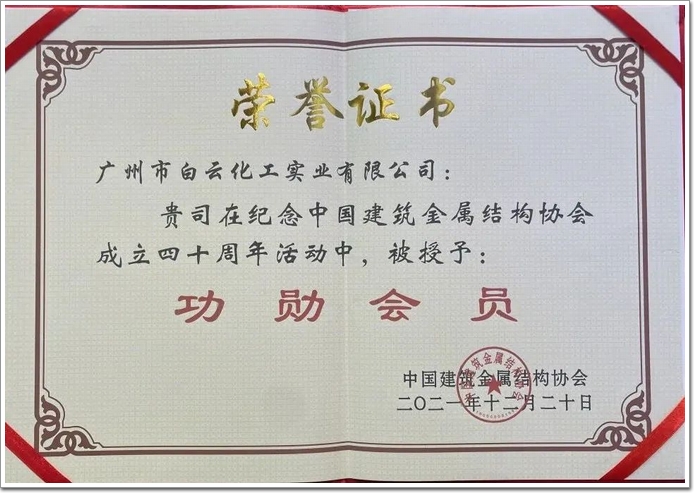 荣誉证书
广州市白云化工实业有限公司：
贵司在纪念中国建筑金属结构协会
成立四十周年活动中，被授予：
功勋会员
中国建筑金属结构协会
二〇二一年十二月二十日
中国建筑金属结构协会